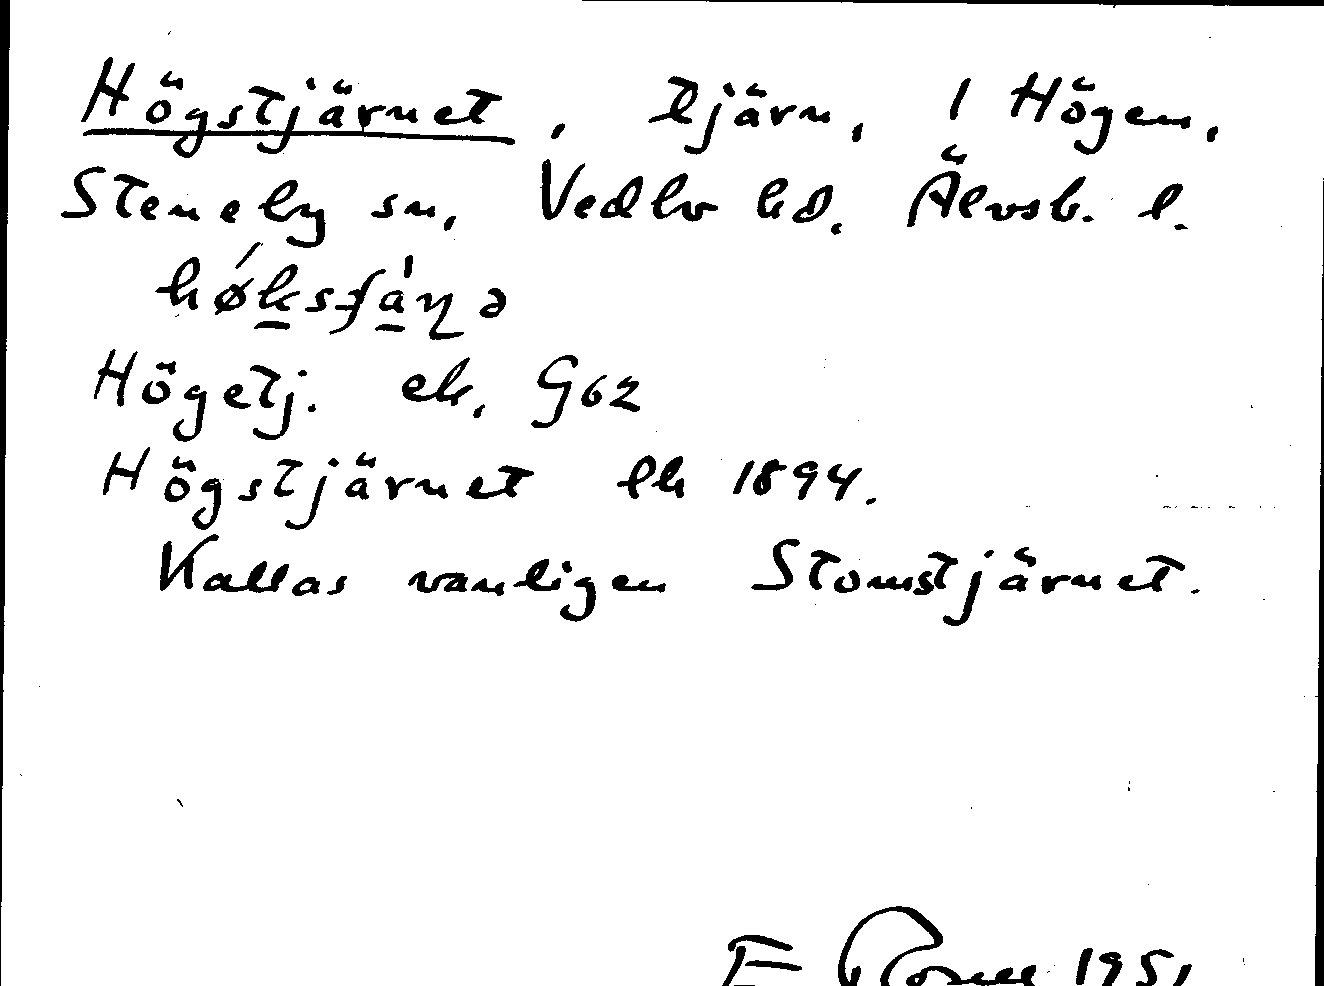 Högstjärnet, tjärn, 1 Högen,
Steneby sn, Vedbo hd. Älvsb. l.
Högetj. ek. G62
Högstjärnet lk 1894.
Kallas vanligen Stomstjärnet.
E 1951